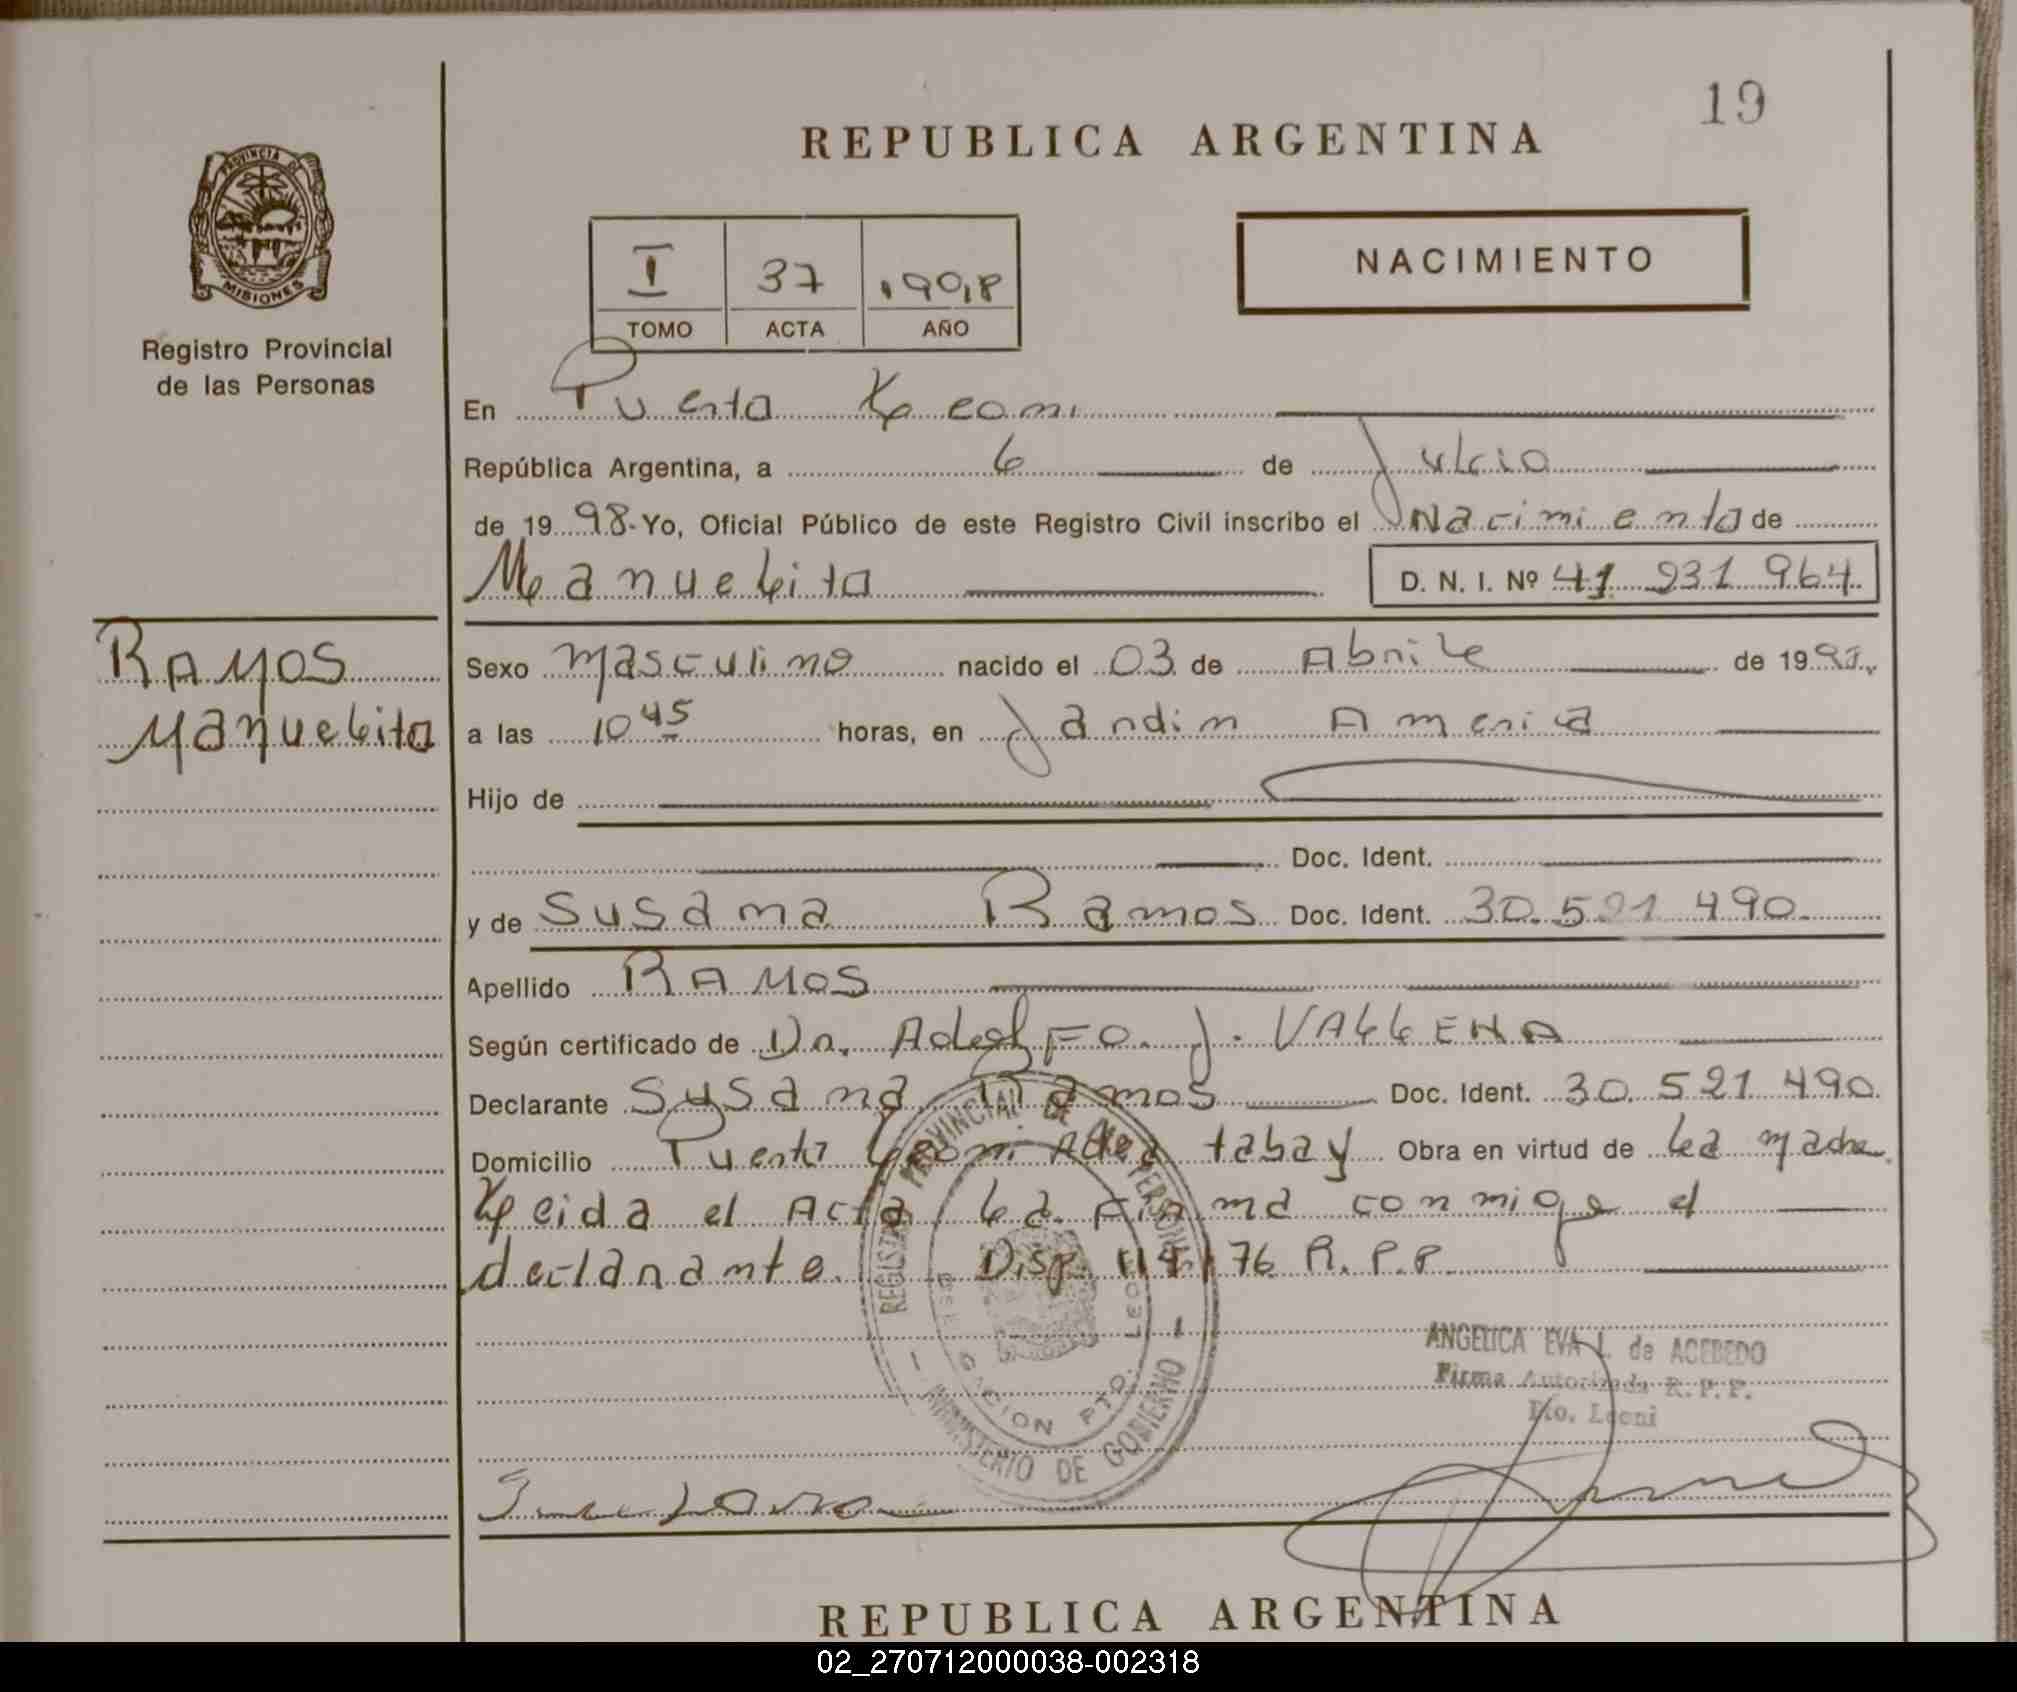 19
REPUBLICA ARGENTINA
PROVINCIA DE
MISIONES
Registro Provincial
de las Personas
I 37 1998
TOMO ACTA AÑO
NACIMIENTO
En Puerto Leoni
República Argentina, a 6 de Julio
de 1998 Yo, Oficial Público de este Registro Civil inscribo el Nacimiento de
Manuelito D. N. I. Nº 41 931 964
RAMOS
Manuelito
Sexo masculino nacido el 03 de Abril de 19
a las 10 45 horas, en Jardin America
Hijo de
Doc. Ident.
y de Susana Ramos Doc. Ident. 30.521 490.
Apellido RAMOS
Según certificado de Dr. Adolfo J. VALLENA
Declarante Susana Ramos Doc. Ident. 30.521.490.
Domicilio Puerto Leoni Aldea tabay Obra en virtud de La madre.
Leida el Acta La Firma conmigo el
declarante. Disp. 114/76 R.P.P.
REGISTRO PROVINCIAL DE PERSONAS
MINISTERIO DE GOBIERNO
DELEGACION PTO. LEONI
ANGELICA EVA L. de ACEBEDO
Firma Autorizada R. P. P.
Pto. Leoni
REPUBLICA ARGENTINA
02_270712000038-002318